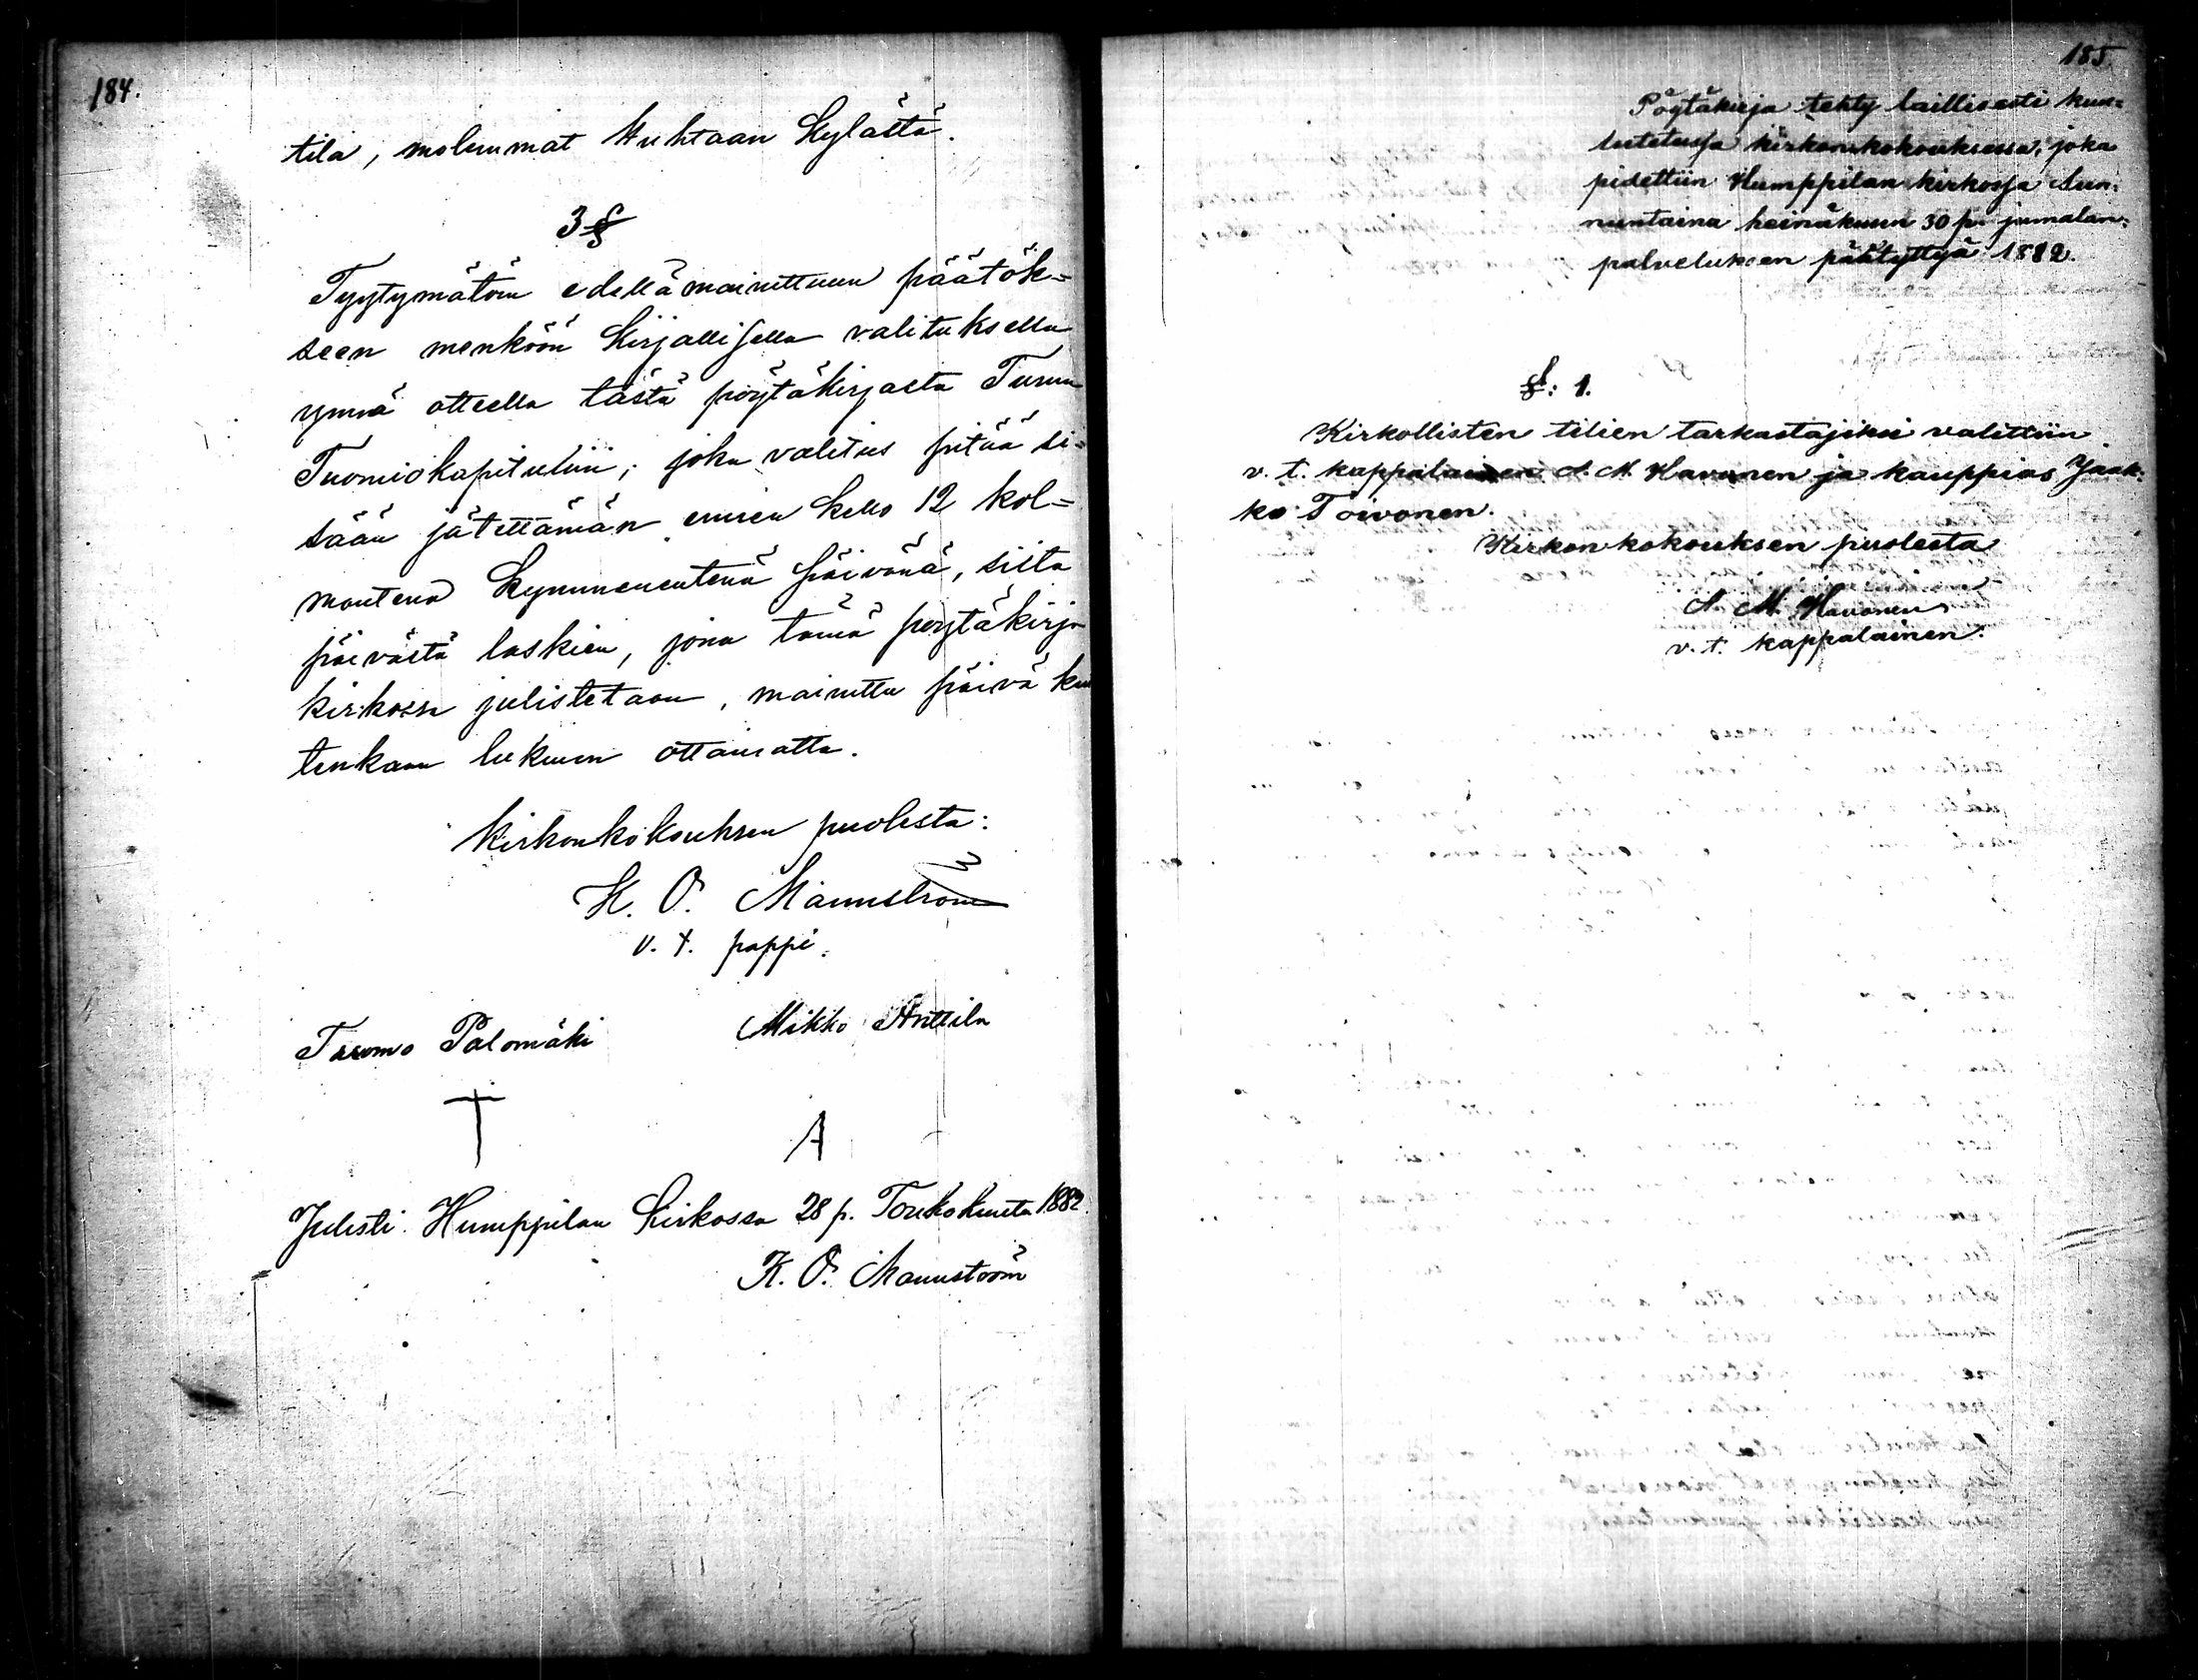 184.
tila, molemmat Huhtaan kylästä.
3 §
Tyytymätön edellämainittuun päätök=
seen menköön kirjallisella valituksella
ynnä otteella tästä pöytäkirjasta Turun
Tuomiokapituliin; joka valitus pitää si=
sään jätettämän ennen kello 12 kol=
mantena kymmenentenä päivänä, siitä
päivästä laskien, jona tämä pöytäkirja
kirkossa julistetaan, mainittu päivä kui
tenkaan lukuun ottamatta.
Kirkonkokouksen puolesta:
K. O. Mannström
v. t. pappi.
Tuomo Palomäki Mikko Anttila
A
Julisti Humppilan kirkossa 28 p. Toukokuuta 1882.
K. O. Mannström
185
Pöytäkirja tehty laillisesti kuu=
lutetussa kirkonkokouksessa, joka
pidettiin Humppilan kirkossa Sun=
nuntaina heinäkuun 30 p. jumalan=
palveluksen päätyttyä 1882.
§: 1.
Kirkollisten tilien tarkastajiksi valittiin
v. t. kappalainen A. M. Havonen ja kauppias Jaak=
ko Toivonen.
Kirkonkokouksen puolesta
A. M. Havonen
v. t. kappalainen.